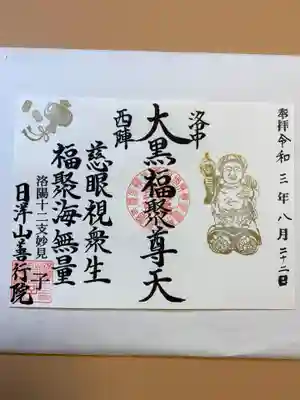 奉拝 令和三年八月二十二日
洛中
西陣
大黒福聚尊天
慈眼視衆生
福聚海無量
洛陽十二支妙見
子
日洋山善行院